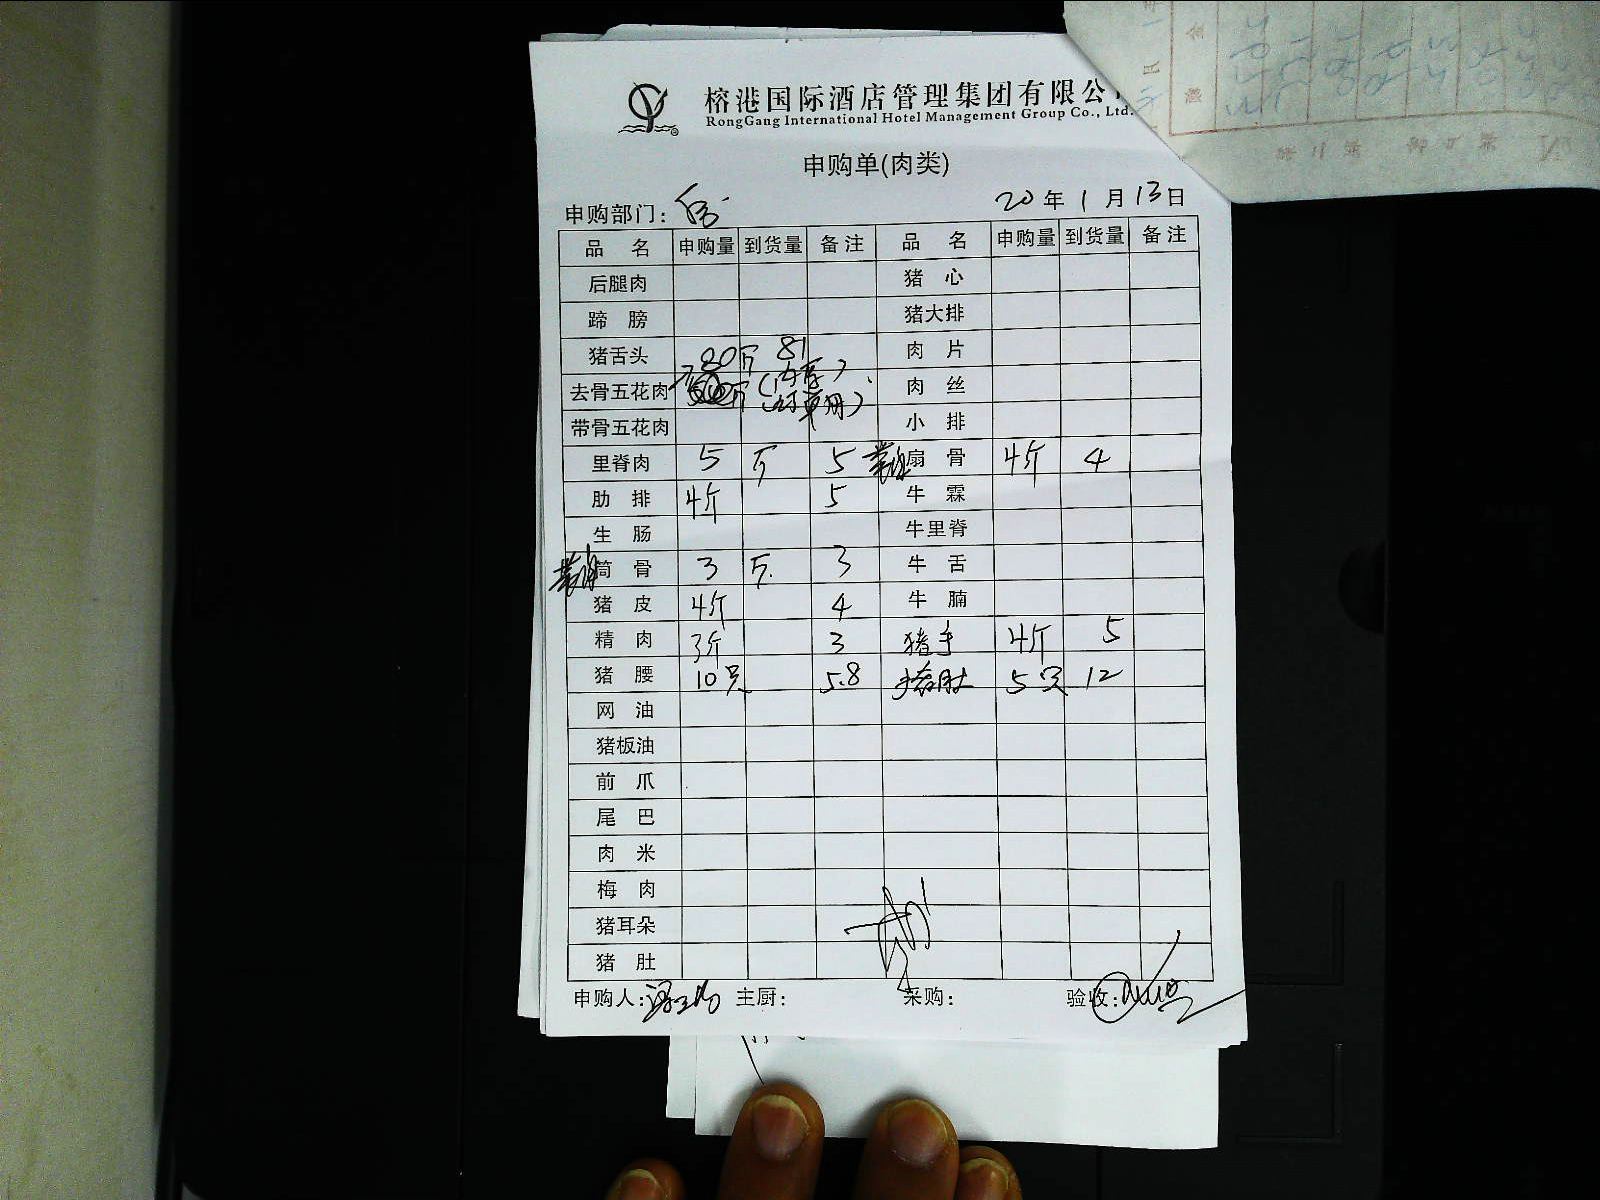 榕港国际酒店管理集团有限公
RongGang International Hotel Management Group Co., Ltd.
申购单(肉类)
申购部门：
20年1月13日
品名 申购量 到货量 备注 品名 申购量 到货量 备注
后腿肉 猪心
蹄膀 猪大排
猪舌头 20斤 81 肉片
去骨五花肉 肉丝
带骨五花肉 小排
里脊肉 5斤 5 扇骨 4斤 4
肋排 4斤 5 牛霖
生肠 牛里脊
筒骨 3斤 3 牛舌
猪皮 4斤 4 牛腩
精肉 3斤 3 猪手 4斤 5
猪腰 10只 5.8 猪肚 5只 12
网油
猪板油
前爪
尾巴
肉米
梅肉
猪耳朵
猪肚
申购人： 主厨： 采购： 验收：